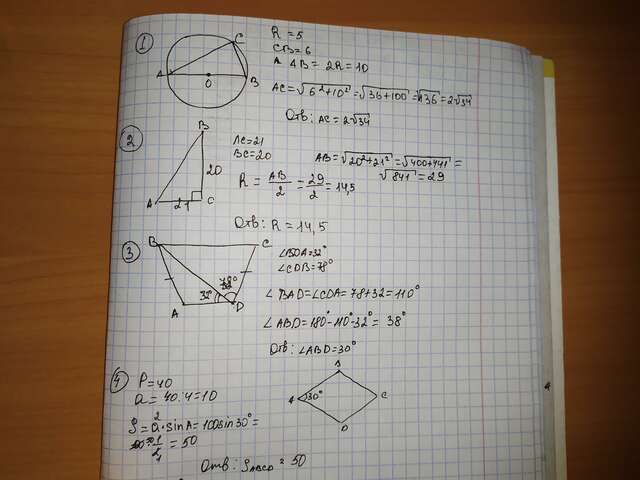 1
C
A
O
B
R = 5
CB = 6
AB = 2R = 10
AC = √6²+10² = √36+100 = √136 = 2√34
Отв: AC = 2√34
2
B
20
A
21
C
AC=21
BC=20
AB = √20²+21² = √400+441 =
√841 = 29
R = AB/2 = 29/2 = 14,5
Отв: R = 14,5
3
B
C
32°
78°
A
D
∠BDA=32°
∠CDB=78°
∠BAD=∠CDA=78+32=110°
∠ABD=180°-110°-32°= 38°
Отв: ∠ABD=30°
4
P=40
a = 40:4=10
S = a²·sinA=100sin30°=
= 50
30°
C
Отв: SABCD = 50